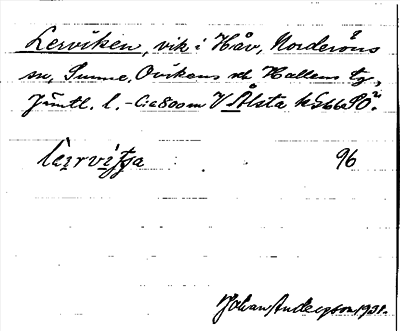 Lerviken, vik i Håv, Norderöns
sn, Sunne, Ovikens och Hallens tg,
Jämtl. l. - C:a 800 m V Ålsta
lęirvit̯ja 96
Johan Anderson 1931.